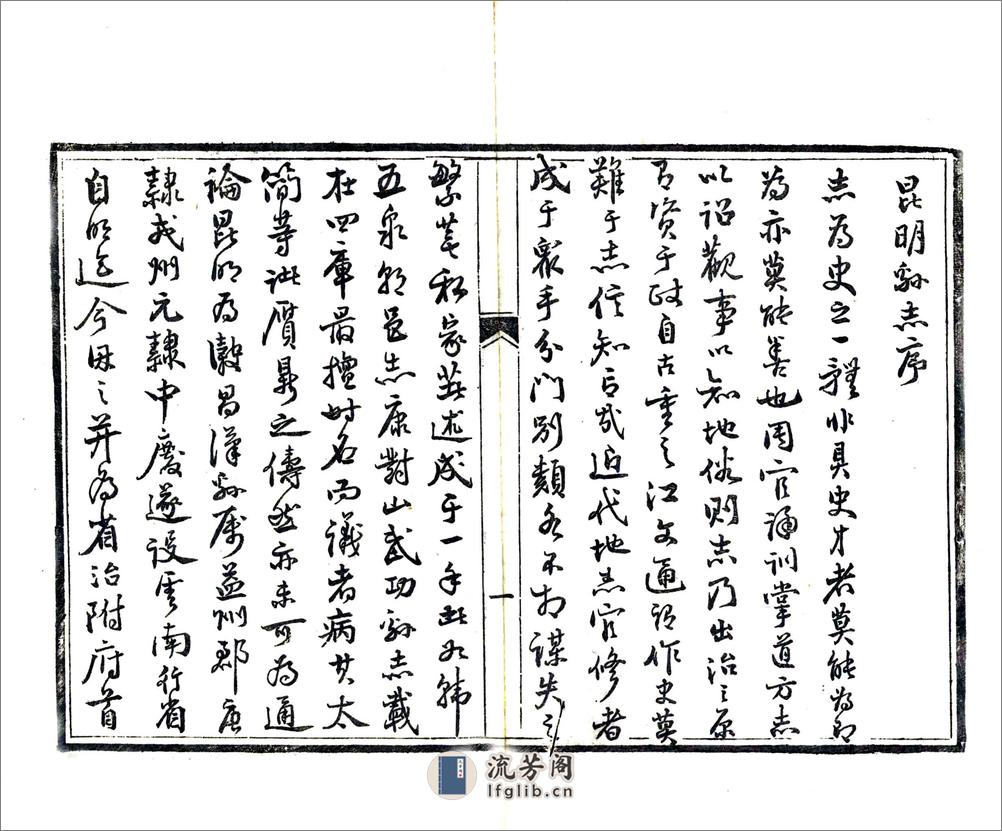 昆明縣志序
志為史之一體非具史才者莫能為即
為亦莫能善也周官誦訓掌道方志
以詔觀事以知地俗則志乃出治之原
有資于政自古重之江文通謂作史莫
難于志信知言哉近代地志官修者
成于眾手分門別類各不相謀失之
繁蕪私家英述成于一手此如韓
五泉朝邑志康對山武功縣志載
在四庫最擅時名而議者病其太
簡等諸贗鼎之儔然亦未可為通
論昆明為穀昌漢縣屬益州郡唐
隸戎州元隸中慶遂設雲南行省
自明迄今因之并為省治附府首
一
流芳阁
lfglib.cn